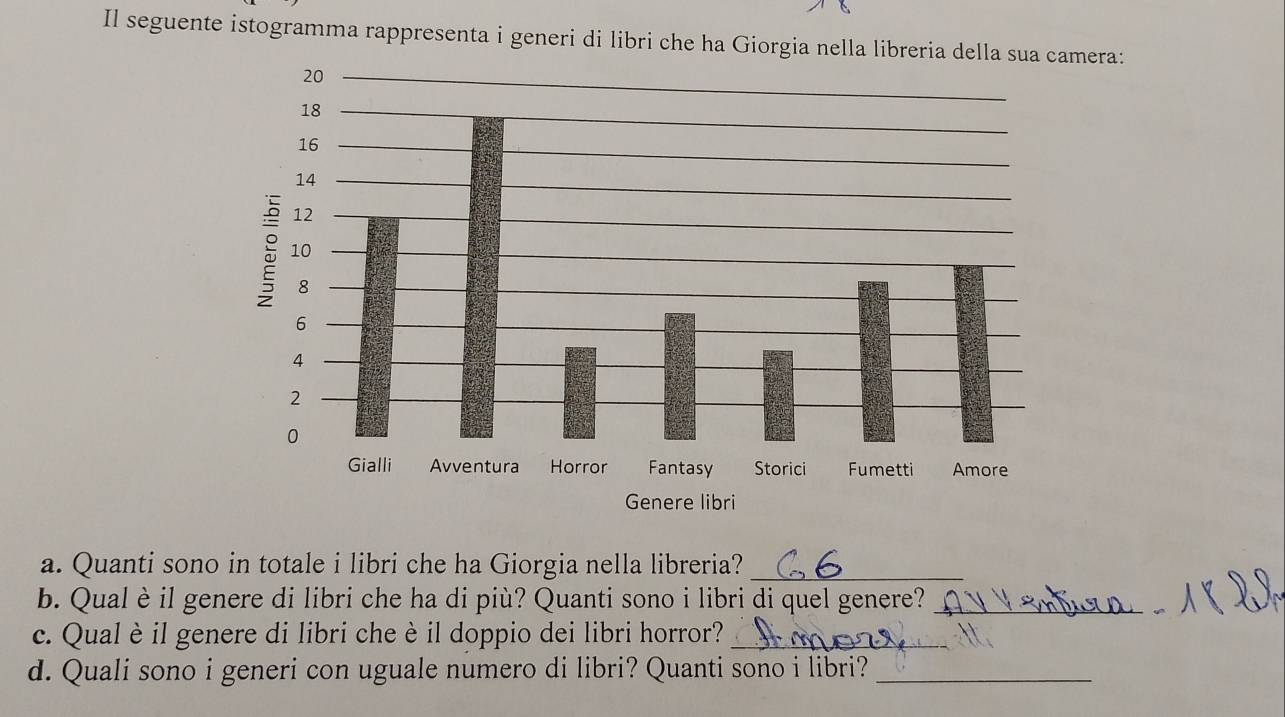 Il seguente istogramma rappresenta i generi di libri che ha Giorgia nella libreria della sua camera:
20
18
16
14
12
10
8
6
4
2
0
Numero libri
Gialli Avventura Horror Fantasy Storici Fumetti Amore
Genere libri
a. Quanti sono in totale i libri che ha Giorgia nella libreria? 66
b. Qual è il genere di libri che ha di più? Quanti sono i libri di quel genere? Avventura - 18
c. Qual è il genere di libri che è il doppio dei libri horror? Amore
d. Quali sono i generi con uguale numero di libri? Quanti sono i libri?